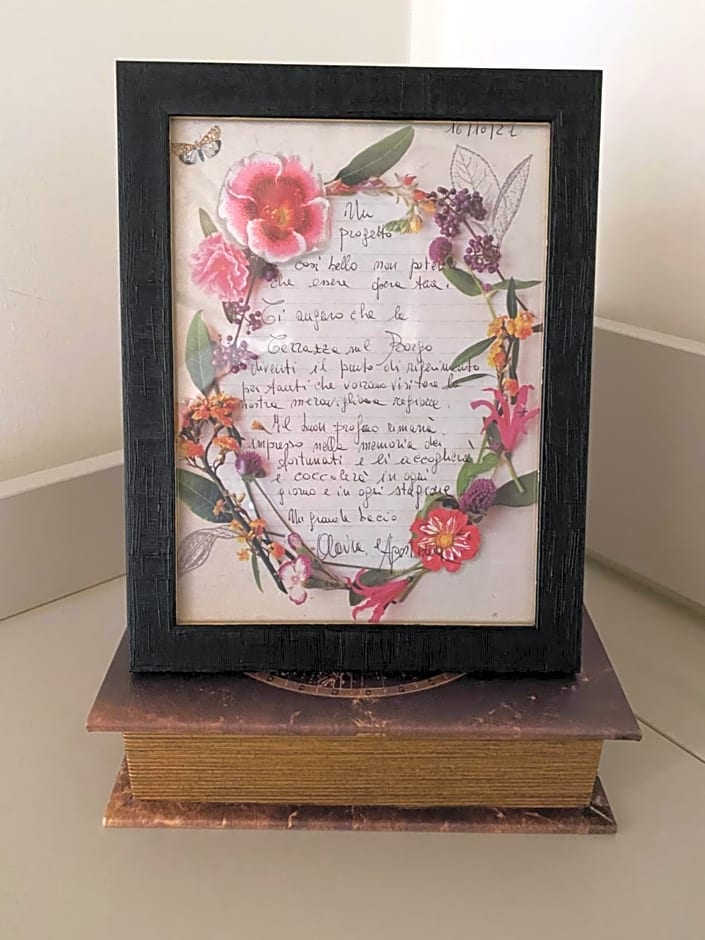 16/10/21
Un
progetto
così bello non poteva
che essere opera tua.
Ti auguro che la
Terrazza sul Borgo
diventi il punto di riferimento
per tanti che vorranno visitare la
nostra meravigliosa regione.
Il buon profumo rimarrà
impresso nella memoria dei
fortunati e li accoglierà
e coccolerà in ogni
giorno e in ogni stagione
Un grande bacio